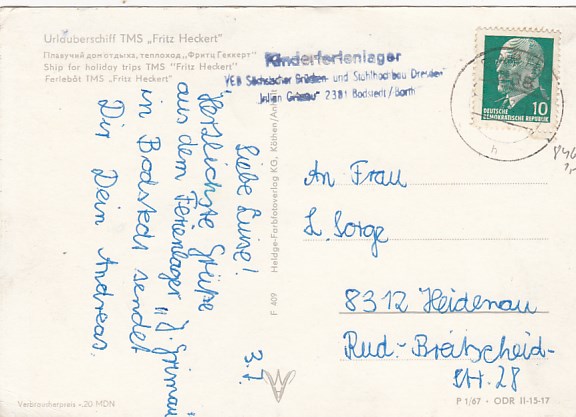 Urlauberschiff TMS „Fritz Heckert"
Плавучий дом отдыха, теплоход „Фритц Геккерт"
Ship for holiday trips TMS "Fritz Heckert"
Feriebåt TMS „Fritz Heckert"
Kinderferienlager
VEB Sächsischer Brücken- und Stahlhochbau Dresden
„Julian Grimau" 2381 Bodstedt / Barth
DEUTSCHE
DEMOKRATISCHE REPUBLIK
10
3.7.
Liebe Luise!
Herzlichste Grüße
aus dem Ferienlager „J. Grimau"
in Bodstedt sendet
Dir Dein Andreas.
Heldge-Farbfotoverlag KG, Köthen/Anhalt
F 409
An Frau
L. Sorge
8312 Heidenau
Rud.-Breitscheid-
Str. 28
Verbraucherpreis -,20 MDN
P 1/67 · ODR II-15-17